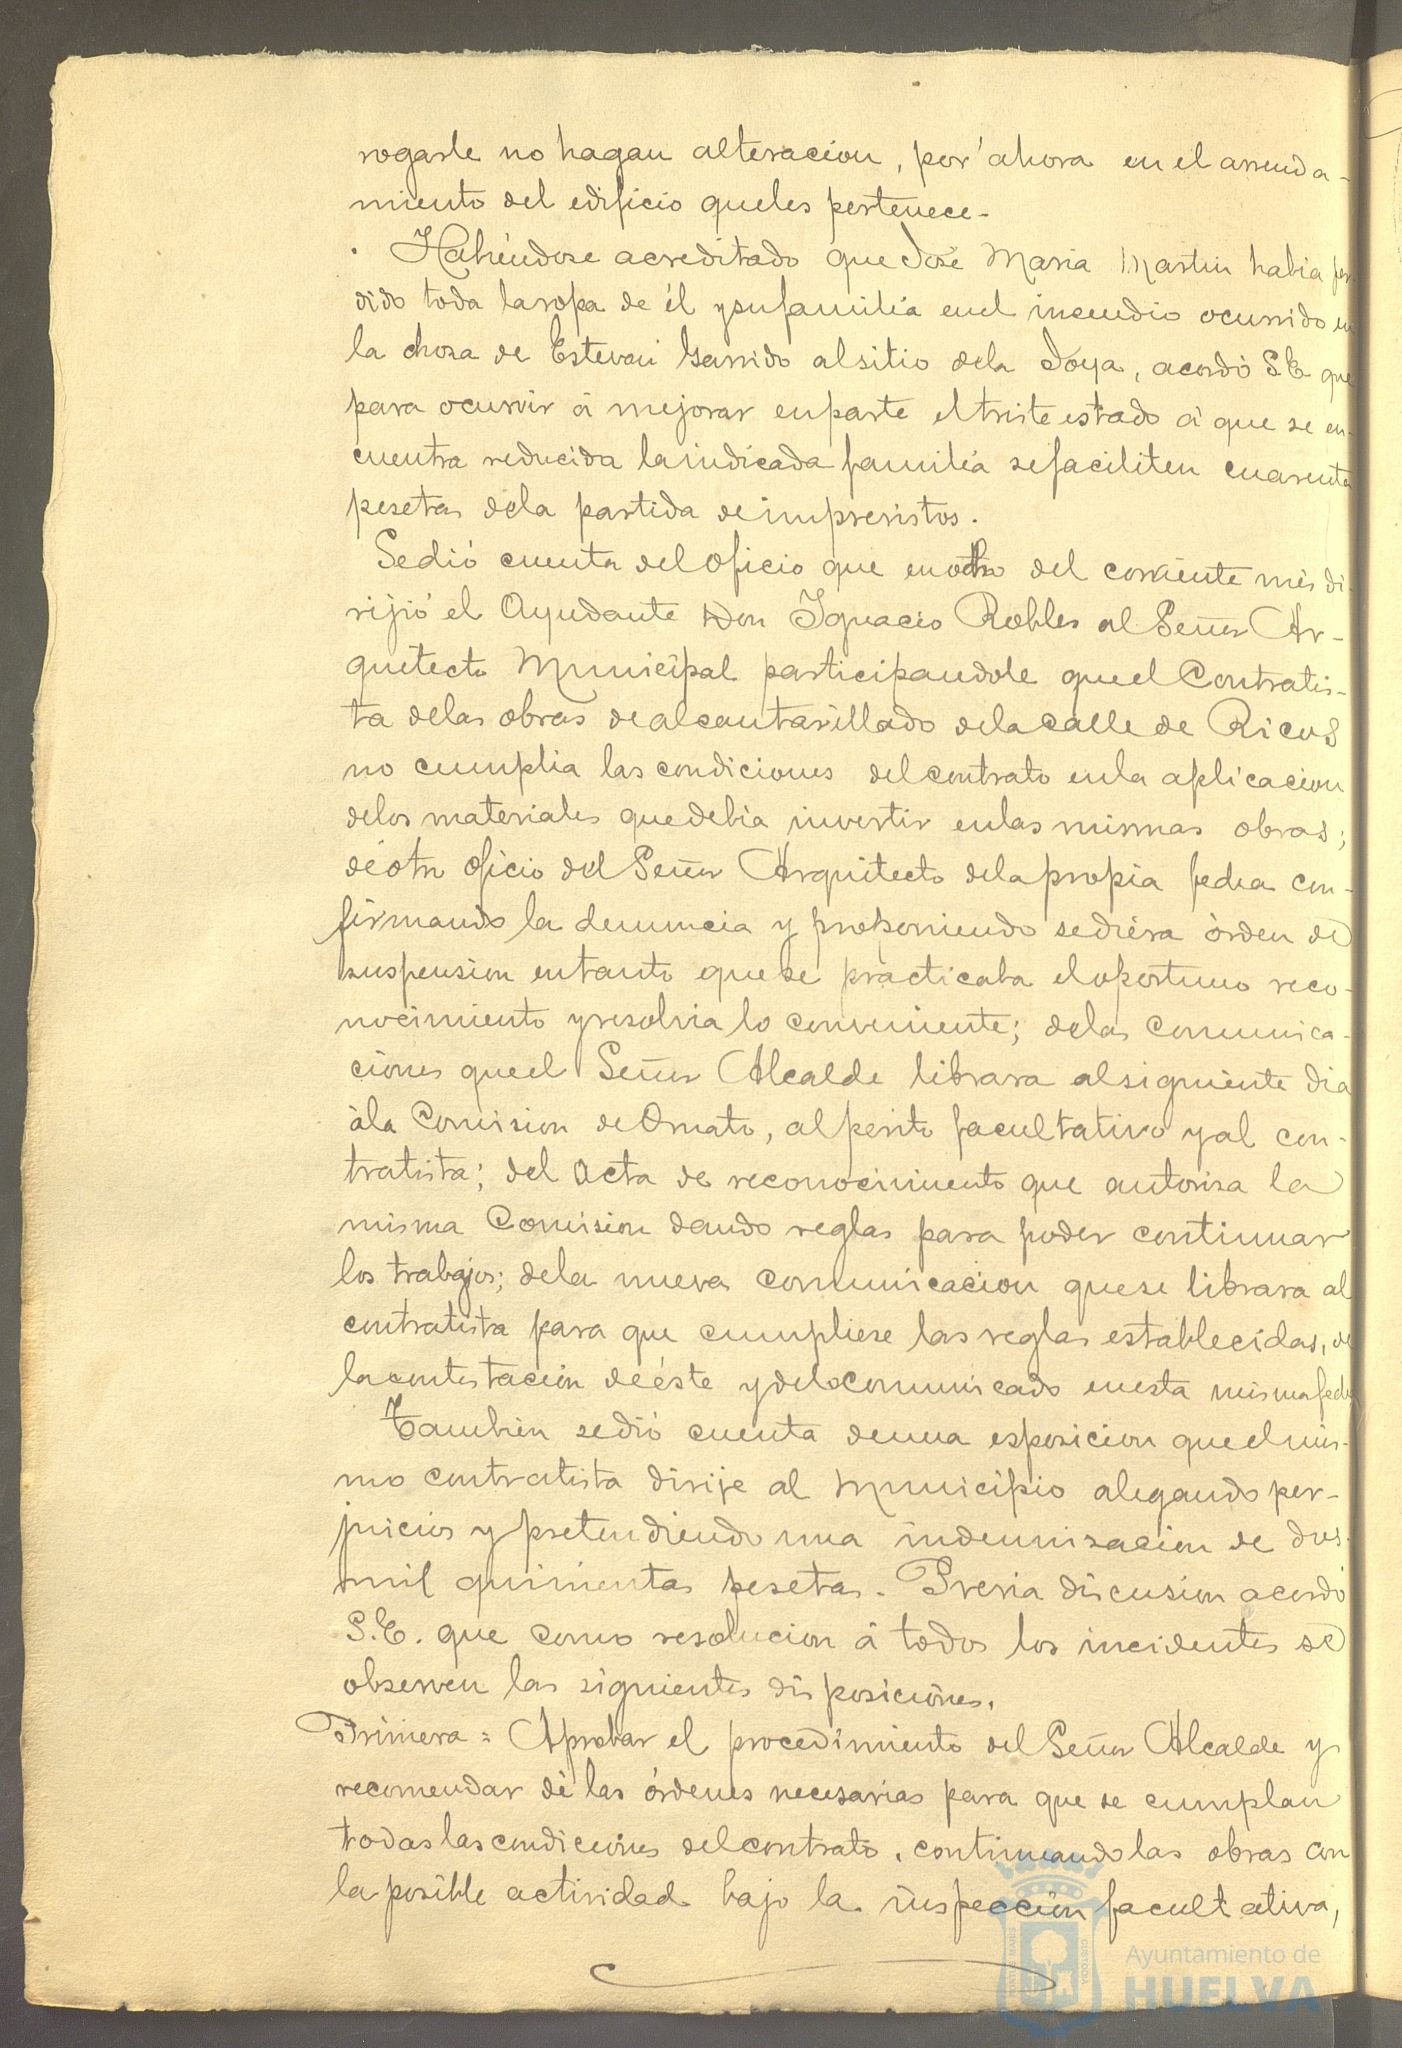 rogarle no hagan alteracion, por ahora en el arrenda-
miento del edificio queles pertenece.
Habiéndose acreditado que José Maria Martin habia per
dido toda laropa de él ysufamilia enel incendio ocurrido en
la choza de Estevan Garrido alsitio dela Joya, acordó S.E. que
para ocurrir á mejorar enparte eltriste estado á que se en-
cuentra reducida laindicada familia sefaciliten cuarenta
pesetas dela partida deimprevistos.
Sedió cuenta deloficio que enocho del corriente mes di
rijió el Ayudante Don Ygnacio Robles al Señor Ar-
quitecto Municipal participandole queel Contratis-
ta delas obras dealcantarillado delacalle de Ricos
no cumplia las condiciones delcontrato enla aplicacion
delos materiales quedebia invertir enlas mismas obras;
deotro oficio del Señor Arquitecto delapropia fecha con-
firmando la denuncia y proponiendo sediera órden de
suspension entanto quese practicaba eloportuno reco-
nocimiento yresolvia lo conveniente; delas comunica-
ciones queel Señor Alcalde librara alsiguiente dia
ála Comision deOrnato, alperito facultativo yal con-
tratista; del acta de reconocimiento que autoriza la
misma Comision dando reglas para poder continuar
los trabajos; dela nueva comunicacion quese librara al
contratista para que cumpliese las reglas establecidas, de
lacontestacion deéste ydelocomunicado enesta mismafecha
Tambien sedió cuenta deuna esposicion queelmis-
mo contratista dirije al Municipio alegando per-
juicios y pretendiendo una indemnizacion de dos
mil quinientas pesetas. Previa discusion acordó
S.E. que como resolucion á todos los incidentes se
observen las siguientes disposiciones.
Primera = Aprobar el procedimiento del Señor Alcalde y
recomendar dé las órdenes necesarias para que se cumplan
todaslascondiciones delcontrato, continuandolas obras con
la posible actividad bajo la inspeccion facultativa,
Ayuntamiento de
HUELVA